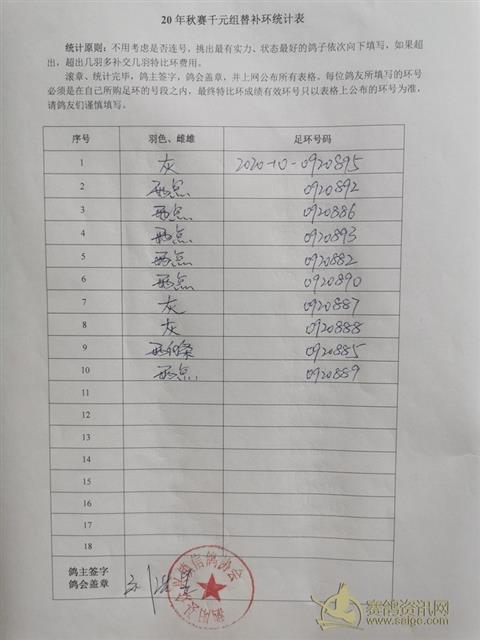 20 年秋赛千元组替补环统计表
统计原则：不用考虑是否连号，挑出最有实力、状态最好的鸽子依次向下填写，如果超
出，超出几羽多补交几羽特比环费用。
滚章、统计完毕，鸽主签字，鸽会盖章，并上网公布所有表格。每位鸽友所填写的环号
必须是在自己所购足环的号段之内，最终特比环成绩有效环号只以表格上公布的环号为准，
请鸽友们谨慎填写。
序号 羽色、雌雄 足环号码
1 灰 2020-10-0920895
2 雨点 0920892
3 雨点 0920886
4 雨点 0920893
5 雨点 0920882
6 雨点 0920890
7 灰 0920887
8 灰 0920888
9 0920885
10 雨点 0920889
11
12
13
14
15
16
17
18
鸽主签字
鸽会盖章
信鸽协会
赛鸽资讯网
www.saige.com